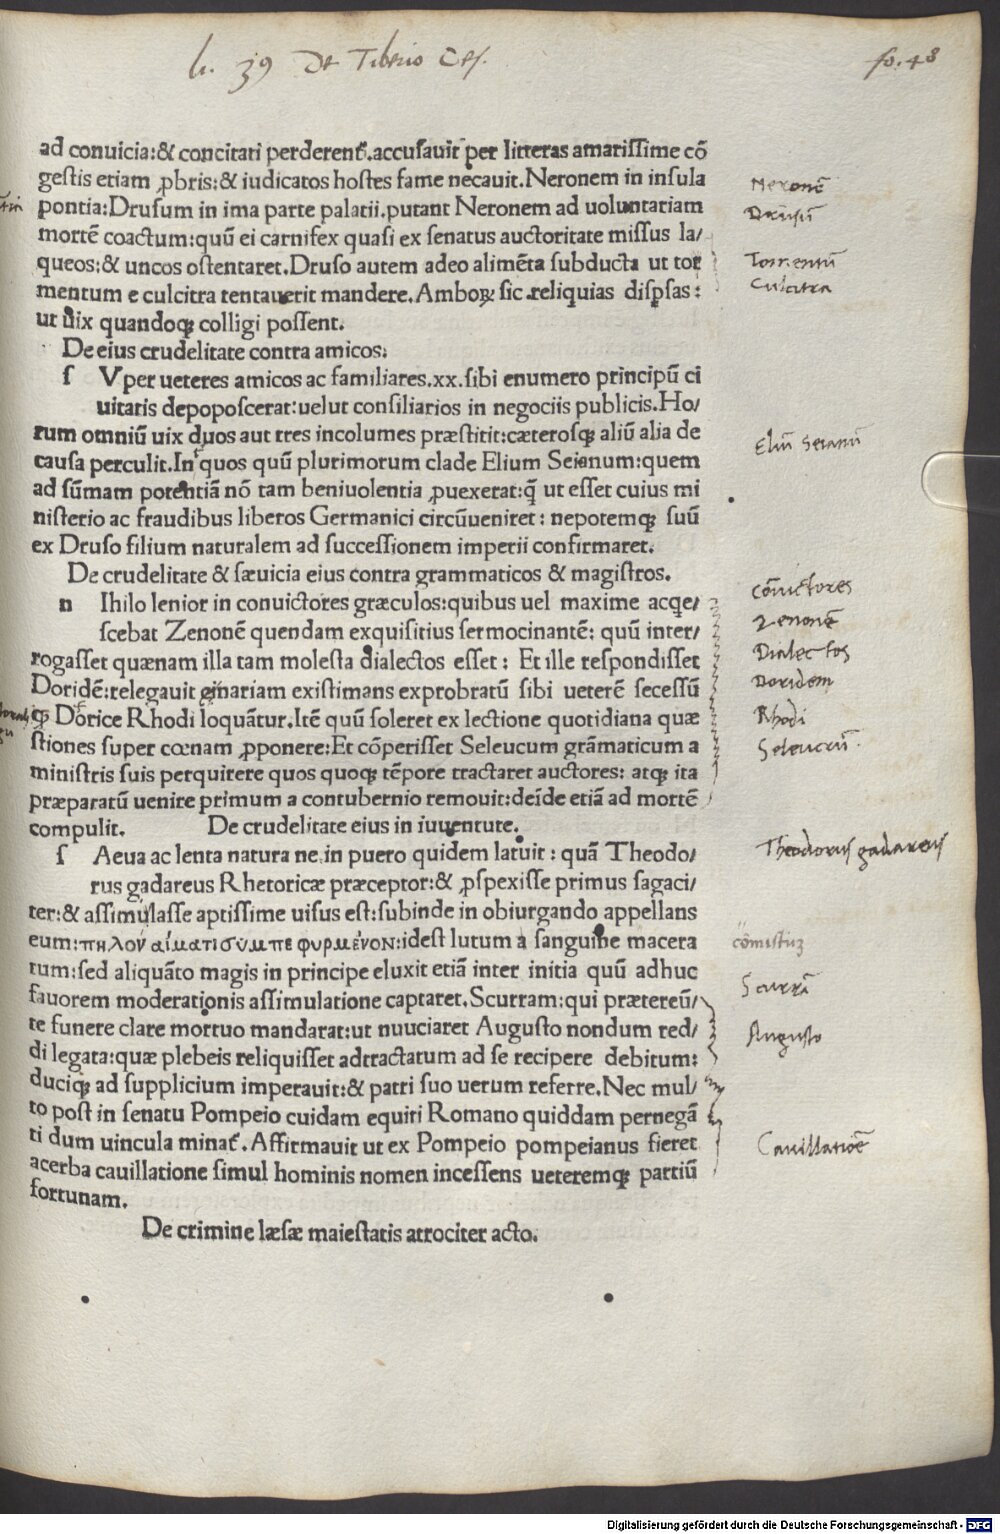 li. 39 De Tiberio Ces.
fo. 48
ad conuicia:& concitati perderent᷑.accusauit per litteras amarissime cō
gestis etiam ꝓbris:& iudicatos hostes fame necauit.Neronem in insula
pontia:Drusum in ima parte palatii.putant Neronem ad uoluntariam
mortē coactum:quū ei carnifex quasi ex senatus auctoritate missus la/
queos:& uncos ostentaret.Druso autem adeo alimēta subducta ut tor
mentum e culcitra tentauerit mandere.Amboꝝ sic reliquias dispsas:
ut uix quandoqꝫ colligi possent.
De eius crudelitate contra amicos:
ſ Vper ueteres amicos ac familiares.xx.sibi enumero principū ci
uitatis depoposcerat:uelut consiliarios in negociis publicis.Ho/
rum omniū uix duos aut tres incolumes præstitit:cæterosqꝫ aliū alia de
causa perculit.In quos quū plurimorum clade Elium Seianum:quem
ad sūmam potentiā nō tam beniuolentia ꝓuexerat:q̄ ut esset cuius mi
nisterio ac fraudibus liberos Germanici circūueniret: nepotemqꝫ suū
ex Druso filium naturalem ad successionem imperii confirmaret.
De crudelitate & sæuicia eius contra grammaticos & magistros.
n Ihilo lenior in conuictores græculos:quibus uel maxime acqe/
scebat Zenonē quendam exquisitius sermocinantē: quū inter/
rogasset quænam illa tam molesta dialectos esset: Et ille respondisset
Doridē:relegauit cinariam existimans exprobratū sibi ueterē secessū
qꝫ Dorice Rhodi loquātur.Itē quū soleret ex lectione quotidiana quæ
stiones super cœnam ꝓponere:Et cōperisset Seleucum grāmaticum a
ministris suis perquirere quos quoqꝫ tēpore tractaret auctores: atqꝫ ita
præparatū uenire primum a contubernio remouit:deīde etiā ad mortē
compulit. De crudelitate eius in iuuentute.
ſ Aeua ac lenta natura ne in puero quidem latuit: quā Theodo/
rus gadareus Rhetoricæ præceptor:& ꝓspexisse primus sagaci/
ter:& assimulasse aptissime uisus est:subinde in obiurgando appellans
eum:πηλον αἱματι συμπεφυρμένον:idest lutum a sanguine macera
tum:sed aliquāto magis in principe eluxit etiā inter initia quū adhuc
fauorem moderationis assimulatione captaret.Scurram:qui prætereū/
te funere clare mortuo mandarat:ut nuuciaret Augusto nondum red/
di legata:quæ plebeis reliquisset adtractatum ad se recipere debitum:
duciqꝫ ad supplicium imperauit:& patri suo uerum referre.Nec mul/
to post in senatu Pompeio cuidam equiti Romano quiddam pernegā
ti dum uincula minat᷑.Affirmauit ut ex Pompeio pompeianus fieret
acerba cauillatione simul hominis nomen incessens ueteremqꝫ partiū
fortunam.
De crimine læsæ maiestatis atrociter acto.
Neronē
Drusū
Tormentū
Culcitra
Eliū Seianū
Cōuictores
Zenonē
Dialectos
Doridem
Rhodi
Seleucū
Theodorus gadareus
Scurrā
Augusto
Cauillatiōe
Digitalisierung gefördert durch die Deutsche Forschungsgemeinschaft - DFG